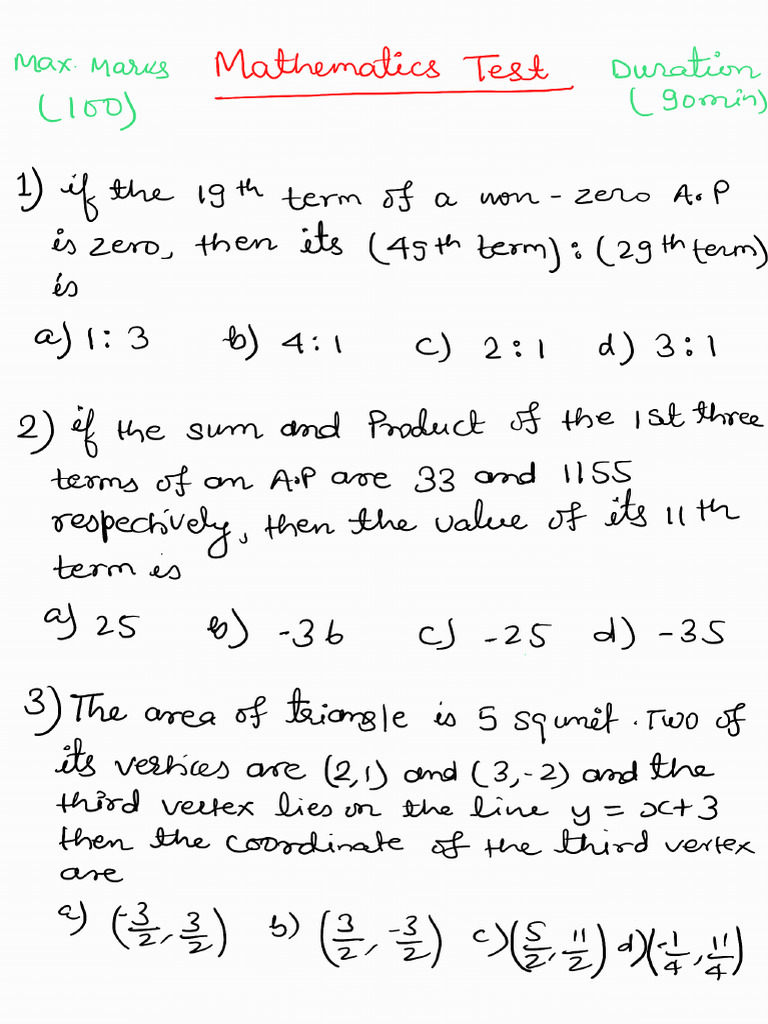 Max. Marks Mathematics Test Duration
(100) (90min)
1) if the 19th term of a non-zero A.P
is zero, then its (49th term) : (29th term)
is
a) 1:3 b) 4:1 c) 2:1 d) 3:1
2) if the sum and Product of the 1st three
terms of an A.P are 33 and 1155
respectively, then the value of its 11th
term is
a) 25 b) -36 c) -25 d) -35
3) The area of triangle is 5 sq unit. Two of
its vertices are (2,1) and (3,-2) and the
third vertex lies on the line y = x+3
then the coordinate of the third vertex
are
a) (-3/2, 3/2) b) (3/2, -3/2) c) (5/2, 11/2) d) (-1/4, 11/4)